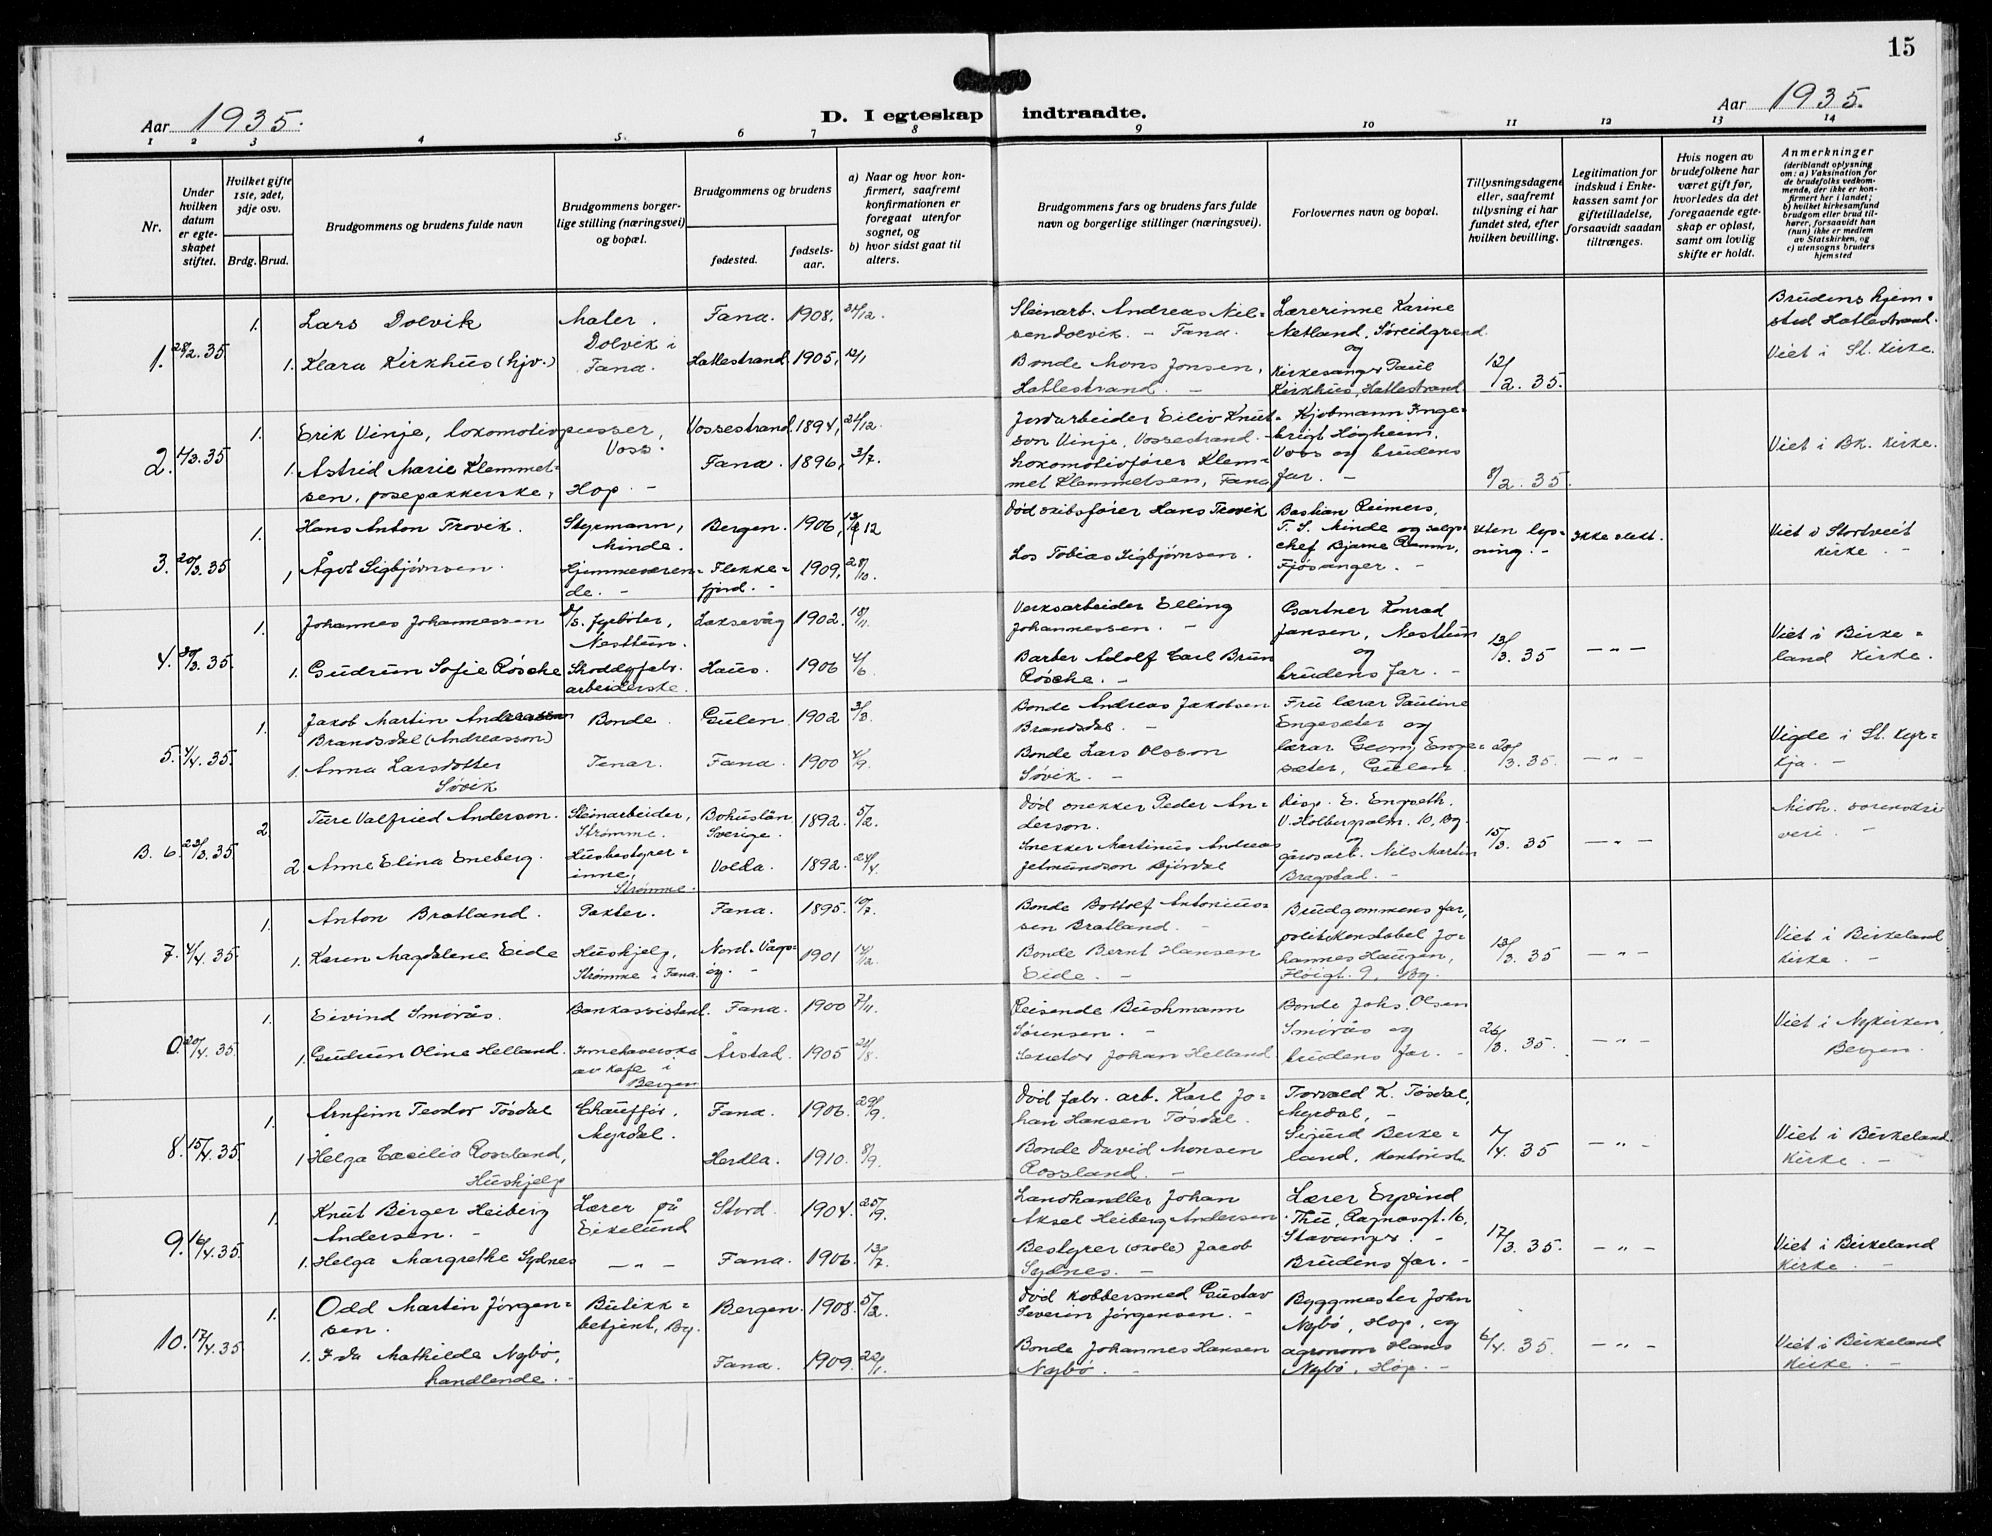 15
Aar 1935.
D. I egteskap indtraadte.
Aar 1935.
1 2 3 4 5. 6 7 8 9 10 11 12 13 14
Nr.
Under hvilken datum er egteskapet stiftet.
Hvilket gifte 1ste, 2det, 3dje osv.
Brdg. Brud.
Brudgommens og brudens fulde navn
Brudgommens borgerlige stilling (næringsvei) og bopæl.
Brudgommens og brudens
fødested.
fødselsaar.
a) Naar og hvor konfirmert, saafremt konfirmationen er foregaat utenfor sognet, og
b) hvor sidst gaat til alters.
Brudgommens fars og brudens fars fulde navn og borgerlige stillinger (næringsvei).
Forlovernes navn og bopæl.
Tillysningsdagene eller, saafremt tillysning ei har fundet sted, efter hvilken bevilling.
Legitimation for indskud i Enkekassen samt for giftetilladelse, forsaavidt saadan tiltrænges.
Hvis nogen av brudefolkene har været gift før, hvorledes da det foregaaende egteskap er opløst, samt om lovlig skifte er holdt.
Anmerkninger
(deriblandt oplysning om: a) Vaksination for de brudefolks vedkommende, der ikke er konfirmert her i landet;
b) hvilket kirkesamfund brudgom eller brud tilhører, forsaavidt han (hun) ikke er medlem av Statskirken, og
c) utensogns bruders hjemsted
1. 28/2.35 1. Lars Dolvik Maler. Dolvik i Fana. Fana. 1908, 31/12.
Steinarb. Andreas Nilsen Dolvik. - Fana.
Lærerinne Karine Netland, Søreidgrend og
Brudens hjemsted Hatlestrand.
1. Klara Kirkhus (hjv.) Hatlestrand 1905, 12/1
Bonde Mons Jonsen, Hatlestrand. -
Kirkesanger Paul Kirkhus, Hatlestrand
12/2. 35.
Viet i St. Kirke.
2. /3.35 1. Erik Vinje, lokomotivpusser, Voss. Vossestrand 1894, 21/12.
Jordarbeider Eiliv Knutson Vinje, Vossestrand.
Kjøbmann Ingebrigt Høgheim, Voss og brudens far. -
1. Astrid Marie Klemmetsen, posepakkerske, Hop. - Fana. 1896, 3/7.
Lokomotivfører Klemmet Klemmetsen, Fana
8/2. 35.
Viet i Bk. Kirke.
3. 20/3.35 1. Hans Anton Trovik. Styrmann, Minde. Bergen. 1906, 12
Død skibsfører Hans Trovik
Bastian Reimers, T. S. Minde og salgschef Bjarne Fjøsanger. -
1, Ågot Sigbjørnsen. Hjemmeværende. - Flekkefjord. - 1909, 28/10.
Los Tobias Sigbjørnsen.
Uten lysning. -
Ikke slekt.
Viet i Storetveit kirke. -
4. 30/3.35 1. Johannes Johannessen D/S. fyrbøter, Nesttun. Laksevåg 1902. 18/11.
Verksarbeider Elling Johannessen. -
Gartner Konrad Jansen, Nesttun og brudens far. -
1. Gudrun Sofie Røsche Skotøyfabr. arbeiderske. Haus. 1906 4/6.
Barber Adolf Carl Brun Røsche. -
13/3. 35
- " -
Viet i Birkeland Kirke.
5. 4/4.35. 1. Jakob Martin Andreassen Brandsdal (Andreasson) Bonde. Gulen. 1902 3/8.
Bonde Andreas Jakobsen Brandsdal. -
Fru lærar Pauline Engesæter og lærar Georg Engesæter, Gulen.
1. Anna Larsdotter Søvik Tenar. Fana. 1900 4/9.
Bonde Lars Olsson Søvik. -
20/3. 35.
- " -
Vigde i St. Kyrkja. -
B. 6. 23/3.35 2 Ture Valfried Anderson. Steinarbeider, Strømme. Bohuslän Sverige. 1892. 5/12.
Død snekker Peder Anderson.
Disp. E. Engseth. V. Holbergsalm. 10, Bg. og gårdsarb. Nils Martin Bragstad. -
2. Anne Elina Eneberg. Husbestyrerinne, Strømme. Volda. 1892. 24/4.
Snekker Martinus Andreas Jetmundson Bjørdal
15/3. 35
- " -
7. 4/4.35. 1. Anton Bratland. Pakter. Fana. 1895. 10/7.
Bonde Bottolf Antoniussen Bratland. -
Brudgommens far, politikonstabel Johannes Haugen, Fløigt. 9, Bg.
1. Karen Magdalene Eide Hushjelp, Strømme i Fana. Nord-Vågsøy. - 1901 14/12.
Bonde Bernt Hansen Eide. -
13/3. 35
- " -
Viet i Birkeland kirke. -
0. 20/4.35. 1. Eivind Smørås. Bankassistent. Fana. 1900 7/11.
Reisende Bushmann Sørensen. -
Bonde Johs. Olsen Smørås og brudens far. -
1. Gudrun Oline Helland. Innehaverske av kafe i Bergen Årstad. 1905 21/8.
Sekretær Johan Helland
26/3. 35.
- " -
Viet i Nykirken, Bergen.
8. 15/4.35 1. Arnfinn Teodor Tøsdal Chauffør, Myrdal. Fana. 1906. 29/9.
Død fabr. arb. Karl Johan Hansen Tøsdal.
Torvald K. Tøsdal, Myrdal, -
1 Helga Cæcilia Rossland, Hushjelp Herdla. 1910. 8/9.
Bonde David Monsen Rossland. -
Sigurd Birkeland, kontorist.
7/4. 35
- " -
Viet i Birkeland kirke. -
9. 16/4.35. 1. Knut Birger Heiberg Andersen. - Lærer på Eikelund Stord. 1904. 25/9.
Landhandler Johan Aksel Heiberg Andersen
Lærer Eyvind Thu, Ragnasgt. 16, Stavanger. -
1. Helga Margrethe Sydnes - " - Fana. 1906. 13/7.
Bestyrer (skole) Jacob Sydnes. -
Brudens far. -
17/3. 35.
- " -
Viet i Birkeland kirke. -
10. 17/4.35 1. Odd Martin Jørgensen. Butikkbetjent, Bg. Bergen. 1908. 5/2.
Død kobbersmed Gustav Severin Jørgensen. -
Byggmester John Nybø, Hop, og agronom Hans Nybø, Hop. -
1. Ida Mathilde Nybø, handlende. - Fana. 1909. 22/1.
Bonde Johannes Hansen Nybø. -
6/4. 35.
- " -
Viet i Birkeland kirke. -